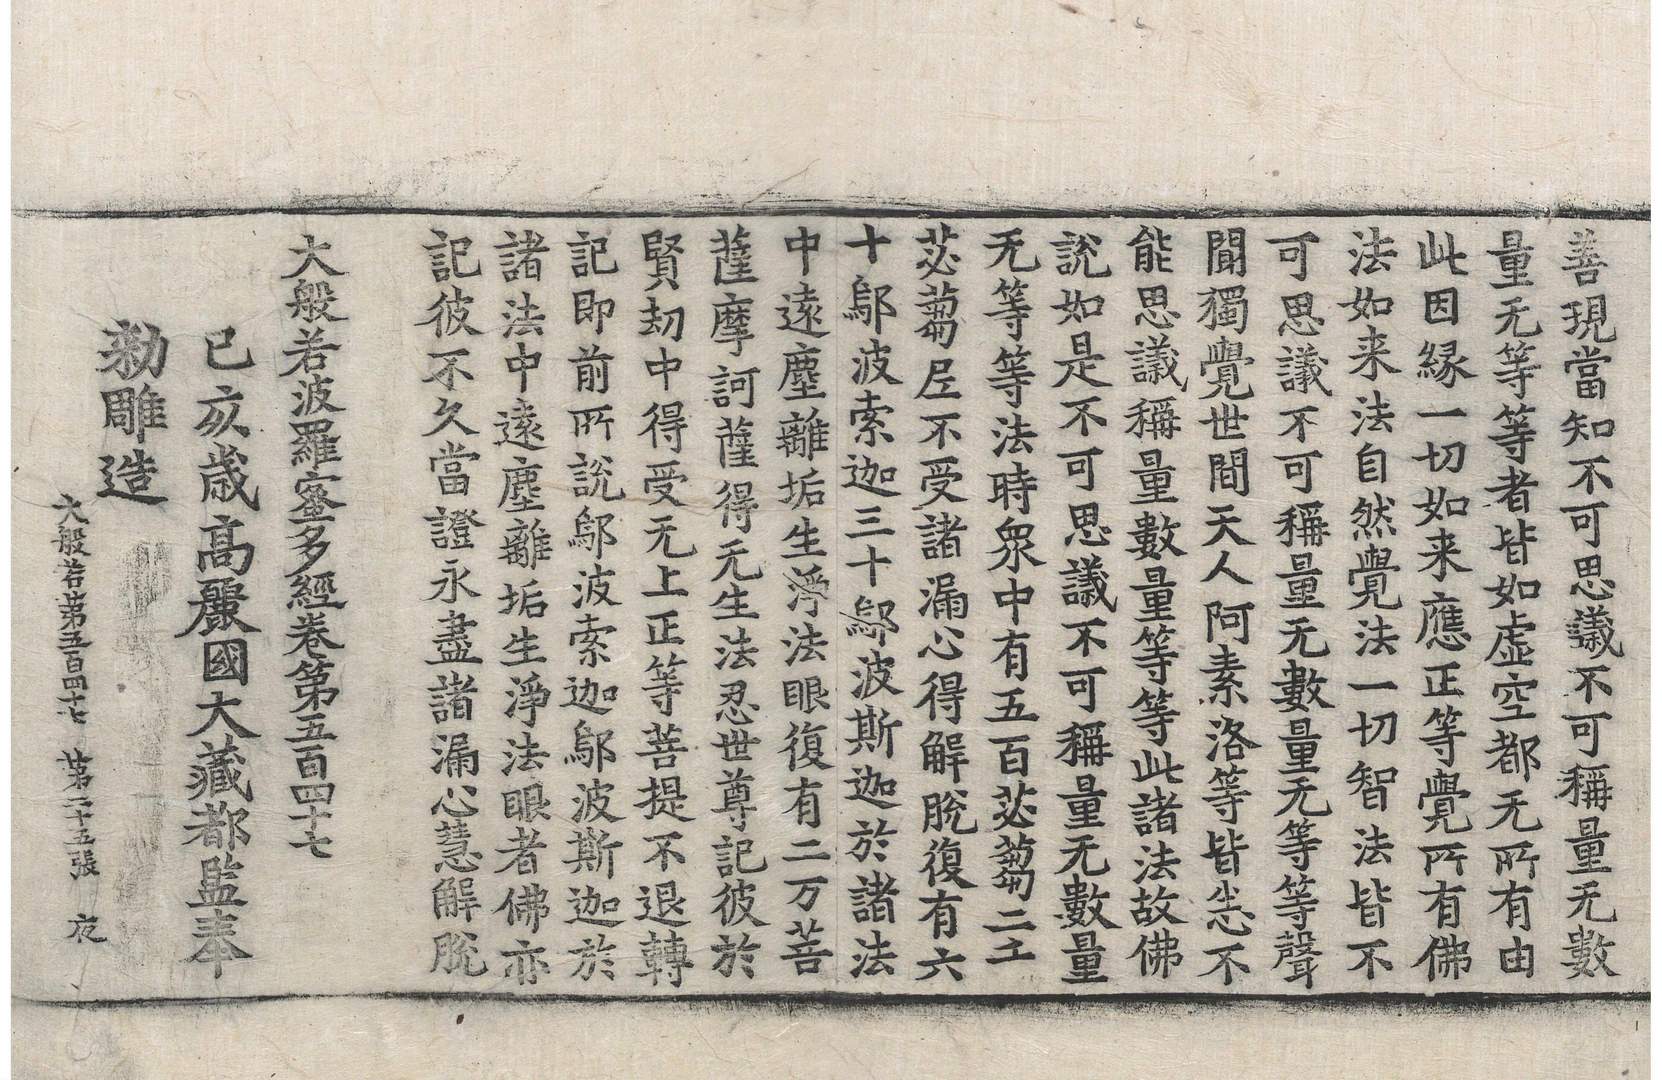 善現當知不可思議不可稱量无數
量无等等者皆如虛空都无所有由
此因緣一切如来應正等覺所有佛
法如来法自然覺法一切智法皆不
可思議不可稱量无數量无等等聲
聞獨覺世間天人阿素洛等皆悉不
能思議稱量數量等等此諸法故佛
說如是不可思議不可稱量无數量
无等等法時眾中有五百苾蒭二千
苾蒭尼不受諸漏心得解脫復有六
十鄔波索迦三十鄔波斯迦於諸法
中遠塵離垢生淨法眼復有二万菩
薩摩訶薩得无生法忍世尊記彼於
賢劫中得受无上正等菩提不退轉
記即前所說鄔波索迦鄔波斯迦於
諸法中遠塵離垢生淨法眼者佛亦
記彼不久當證永盡諸漏心慧解脫
大般若波羅蜜多經卷第五百四十七
己亥歲高麗國大藏都監奉
勑雕造
大般若第五百四十七　第二十五張　夜